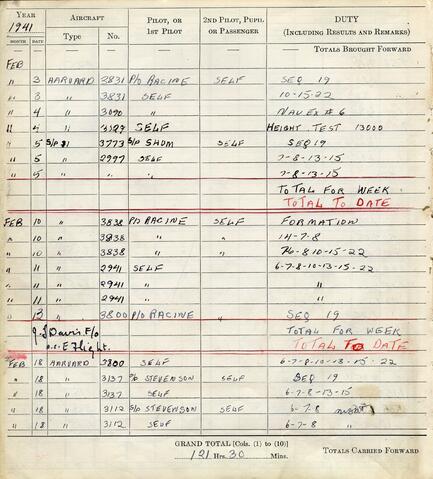 YEAR AIRCRAFT PILOT, OR 1ST PILOT 2ND PILOT, PUPIL OR PASSENGER DUTY (INCLUDING RESULTS AND REMARKS)
1941
MONTH DATE Type No.
TOTALS BROUGHT FORWARD
FEB
" 3 HARVARD 3831 P/O RACINE SELF SEQ 19
" 3 " 3831 SELF 10-15-22
" 4 " 3090 " NAV EX # 6
" 4 " SELF HEIGHT TEST 13000
" 5 3773 SELF SEQ 19
" 5 " 2997 SELF 7-8-13-15
" 5 " " " 7-8-13-15
TOTAL FOR WEEK
TOTAL TO DATE
FEB 10 " 3838 P/O RACINE SELF FORMATION
" 10 " 3838 " " 14-7-8
" 10 " 3838 " " 8-10-15-22
" 11 " 2941 SELF 6-7-8-10-13-15-22
" 11 " 2941 " "
" 11 " 2941 " "
" 13 " 3800 P/O RACINE " SEQ 19
J. Davis F/O TOTAL FOR WEEK
o.c. E Flight. TOTAL TO DATE
FEB 18 HARVARD 3800 SELF 6-7-8-10-13-15-22
" 18 " 3137 STEVENSON SELF SEQ 19
" 18 " 3137 SELF 6-7-8-13-15
" 18 " 3112 STEVENSON SELF 6-7-8 NIGHT
" 18 " 3112 SELF 6-7-8 "
GRAND TOTAL [Cols. (1) to (10)]
121 Hrs. 30 Mins.
TOTALS CARRIED FORWARD